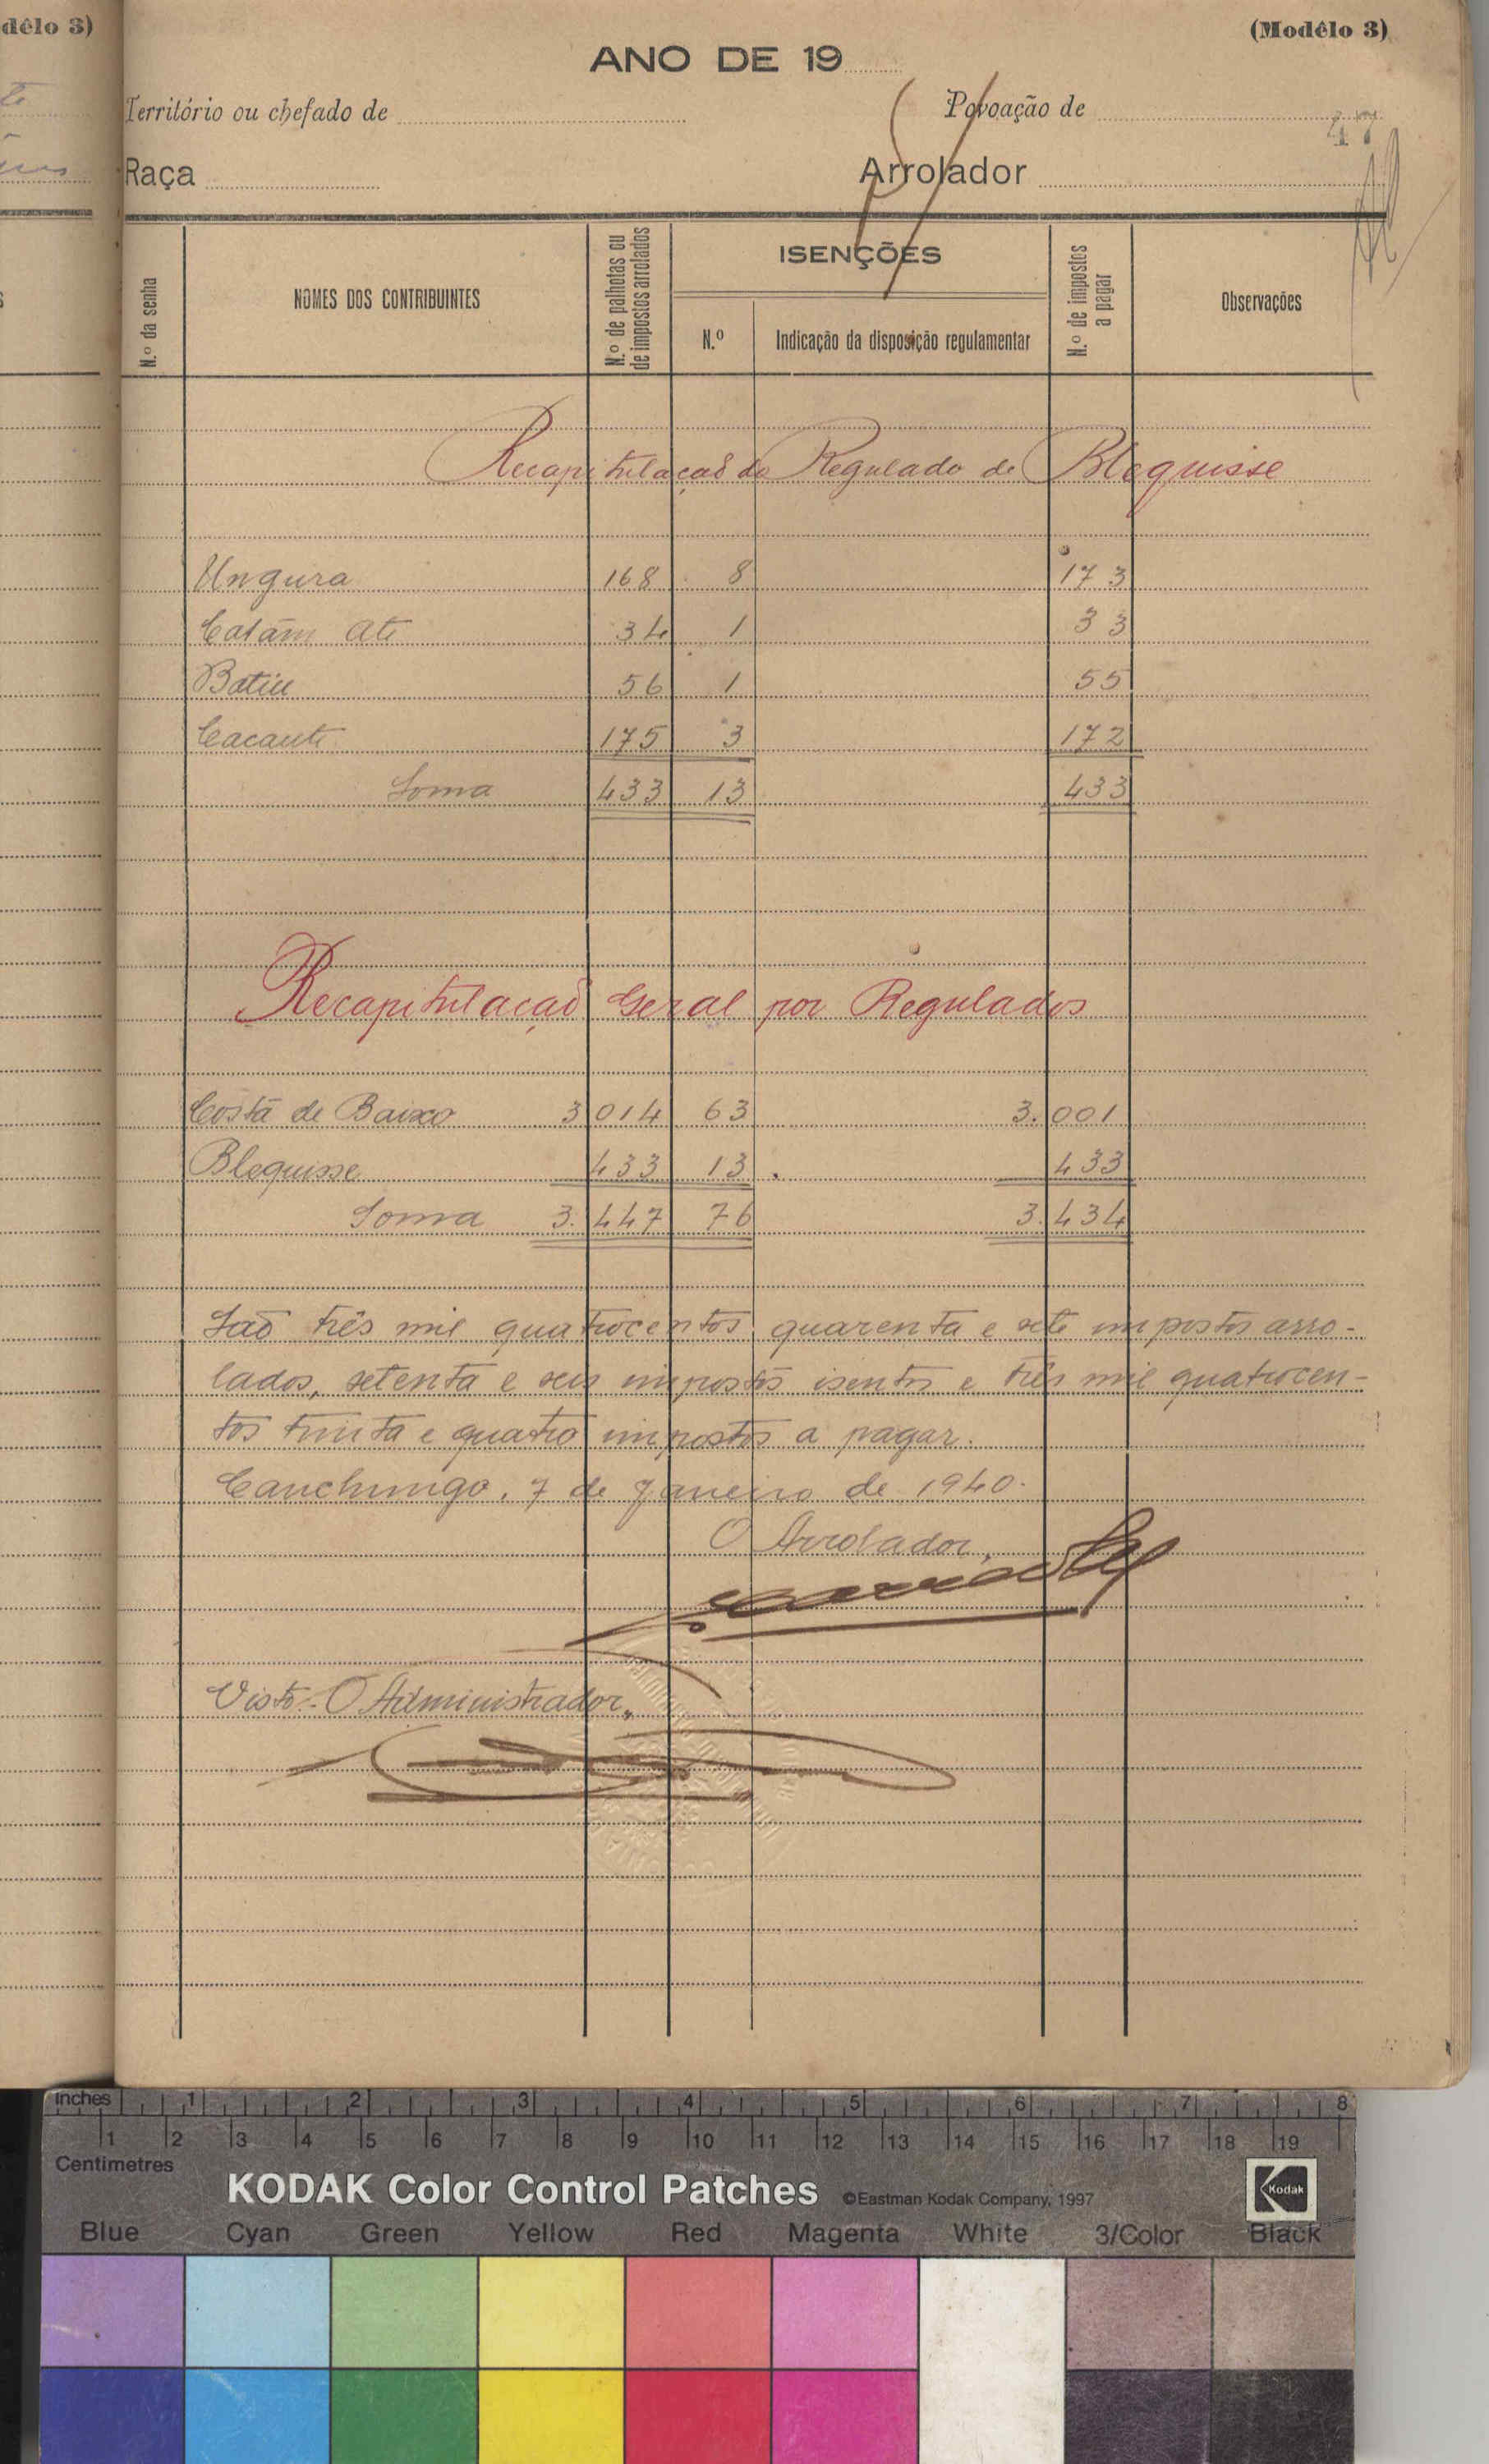 délo 3)
(Modêlo 3)
ANO DE 19
Território ou chefado de
Povoação de
47
Raça
Arrolador
N.º da senha
NOMES DOS CONTRIBUINTES
N.º de palhotas ou de impostos arrolados
ISENÇÕES
N.º
Indicação da disposição regulamentar
N.º de impostos a pagar
Observações
Recapitulação do Regulado de Blequisse
Ungura 168 8 173
Catám Ate 34 1 33
Batiu 56 1 55
Cacante 175 3 172
Soma 433 13 433
Recapitulação Geral por Regulados
Costa de Baixo 3 014 63 3.001
Blequisse 433 13 433
Soma 3.447 76 3.434
São três mil quatrocentos quarenta e sete impostos arro-
lados, setenta e seis impostos isentos e três mil quatrocen-
tos trinta e quatro impostos a pagar.
Canchungo, 7 de Janeiro de 1940.
O Arrolador,
Visto.- O Administrador,
Inches 1 2 3 4 5 6 7 8
1 2 3 4 5 6 7 8 9 10 11 12 13 14 15 16 17 18 19
Centimetres
KODAK Color Control Patches ©Eastman Kodak Company, 1997 Kodak
Blue Cyan Green Yellow Red Magenta White 3/Color Black